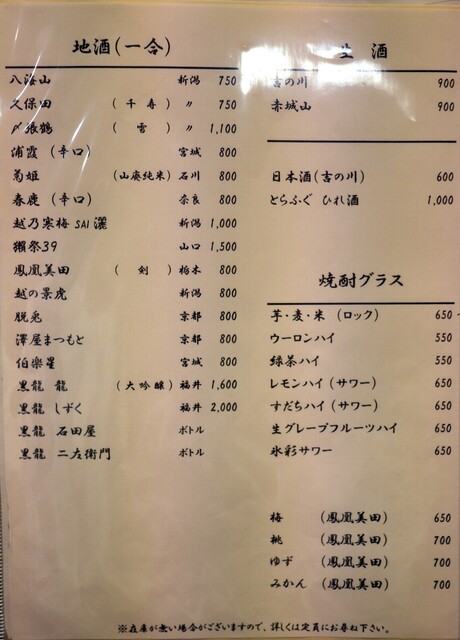 地酒(一合)
八海山 新潟 750
久保田 (千寿) 〃 750
〆張鶴 (雪) 〃 1,100
浦霞 (辛口) 宮城 800
菊姫 (山廃純米) 石川 800
春鹿 (辛口) 奈良 800
越乃寒梅 SAI 灑 新潟 1,000
獺祭39 山口 1,500
鳳凰美田 (剣) 栃木 800
越の景虎 新潟 800
脱兎 京都 800
澤屋まつもと 京都 800
伯楽星 宮城 800
黒龍 龍 (大吟醸) 福井 1,600
黒龍 しずく 福井 2,000
黒龍 石田屋 ボトル
黒龍 二左衛門 ボトル
生酒
吉の川 900
赤城山 900
日本酒(吉の川) 600
とらふぐ ひれ酒 1,000
焼酎グラス
芋・麦・米 (ロック) 650
ウーロンハイ 550
緑茶ハイ 550
レモンハイ (サワー) 650
すだちハイ (サワー) 650
生グレープフルーツハイ 650
氷彩サワー 650
梅 (鳳凰美田) 650
桃 (鳳凰美田) 700
ゆず (鳳凰美田) 700
みかん (鳳凰美田) 700
※在庫が無い場合がございますので、詳しくは定員にお尋ね下さい。